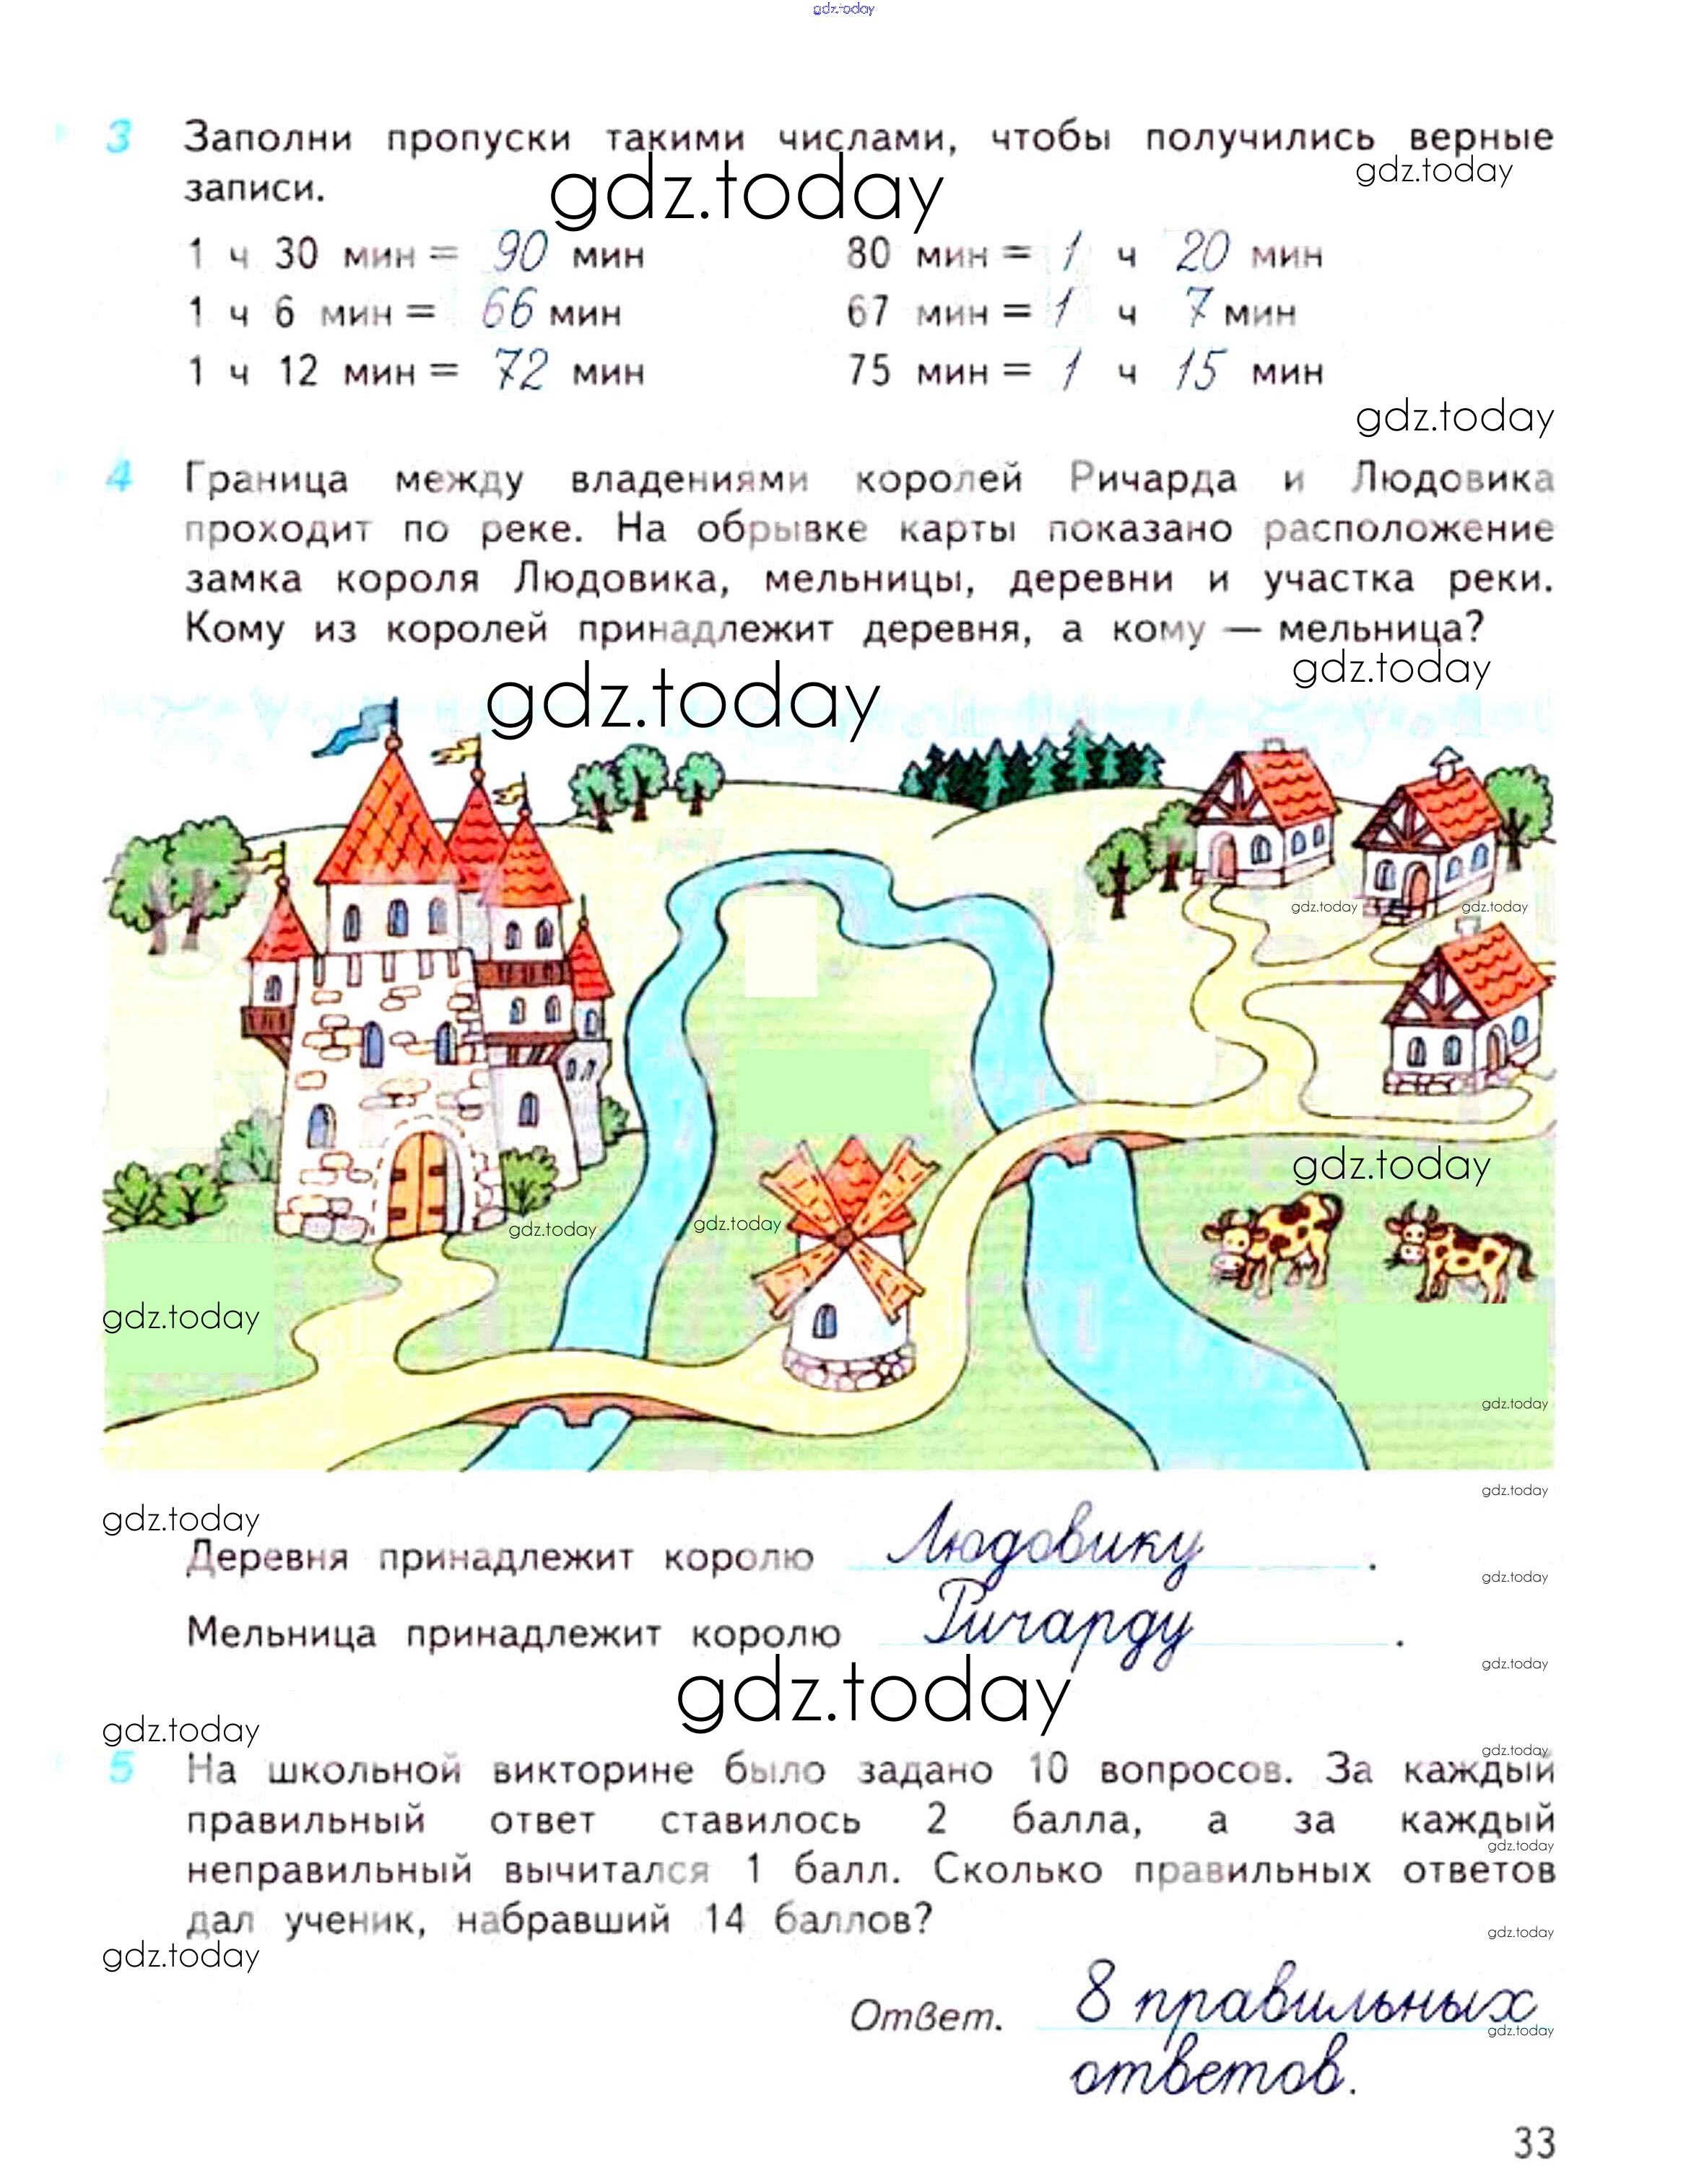 gdz.today
3 Заполни пропуски такими числами, чтобы получились верные
gdz.today
записи.
gdz.today
1 ч 30 мин = 90 мин 80 мин = 1 ч 20 мин
1 ч 6 мин = 66 мин 67 мин = 1 ч 7 мин
1 ч 12 мин = 72 мин 75 мин = 1 ч 15 мин
gdz.today
4 Граница между владениями королей Ричарда и Людовика
проходит по реке. На обрывке карты показано расположение
замка короля Людовика, мельницы, деревни и участка реки.
Кому из королей принадлежит деревня, а кому — мельница?
gdz.today
gdz.today
gdz.today gdz.today
gdz.today
gdz.today gdz.today
gdz.today
gdz.today
gdz.today
gdz.today
Деревня принадлежит королю Людовику.
gdz.today
Мельница принадлежит королю Ричарду.
gdz.today
gdz.today
gdz.today
gdz.today
5 На школьной викторине было задано 10 вопросов. За каждый
правильный ответ ставилось 2 балла, а за каждый
gdz.today
неправильный вычитался 1 балл. Сколько правильных ответов
дал ученик, набравший 14 баллов?
gdz.today
gdz.today
Ответ. 8 правильных
gdz.today
ответов.
33